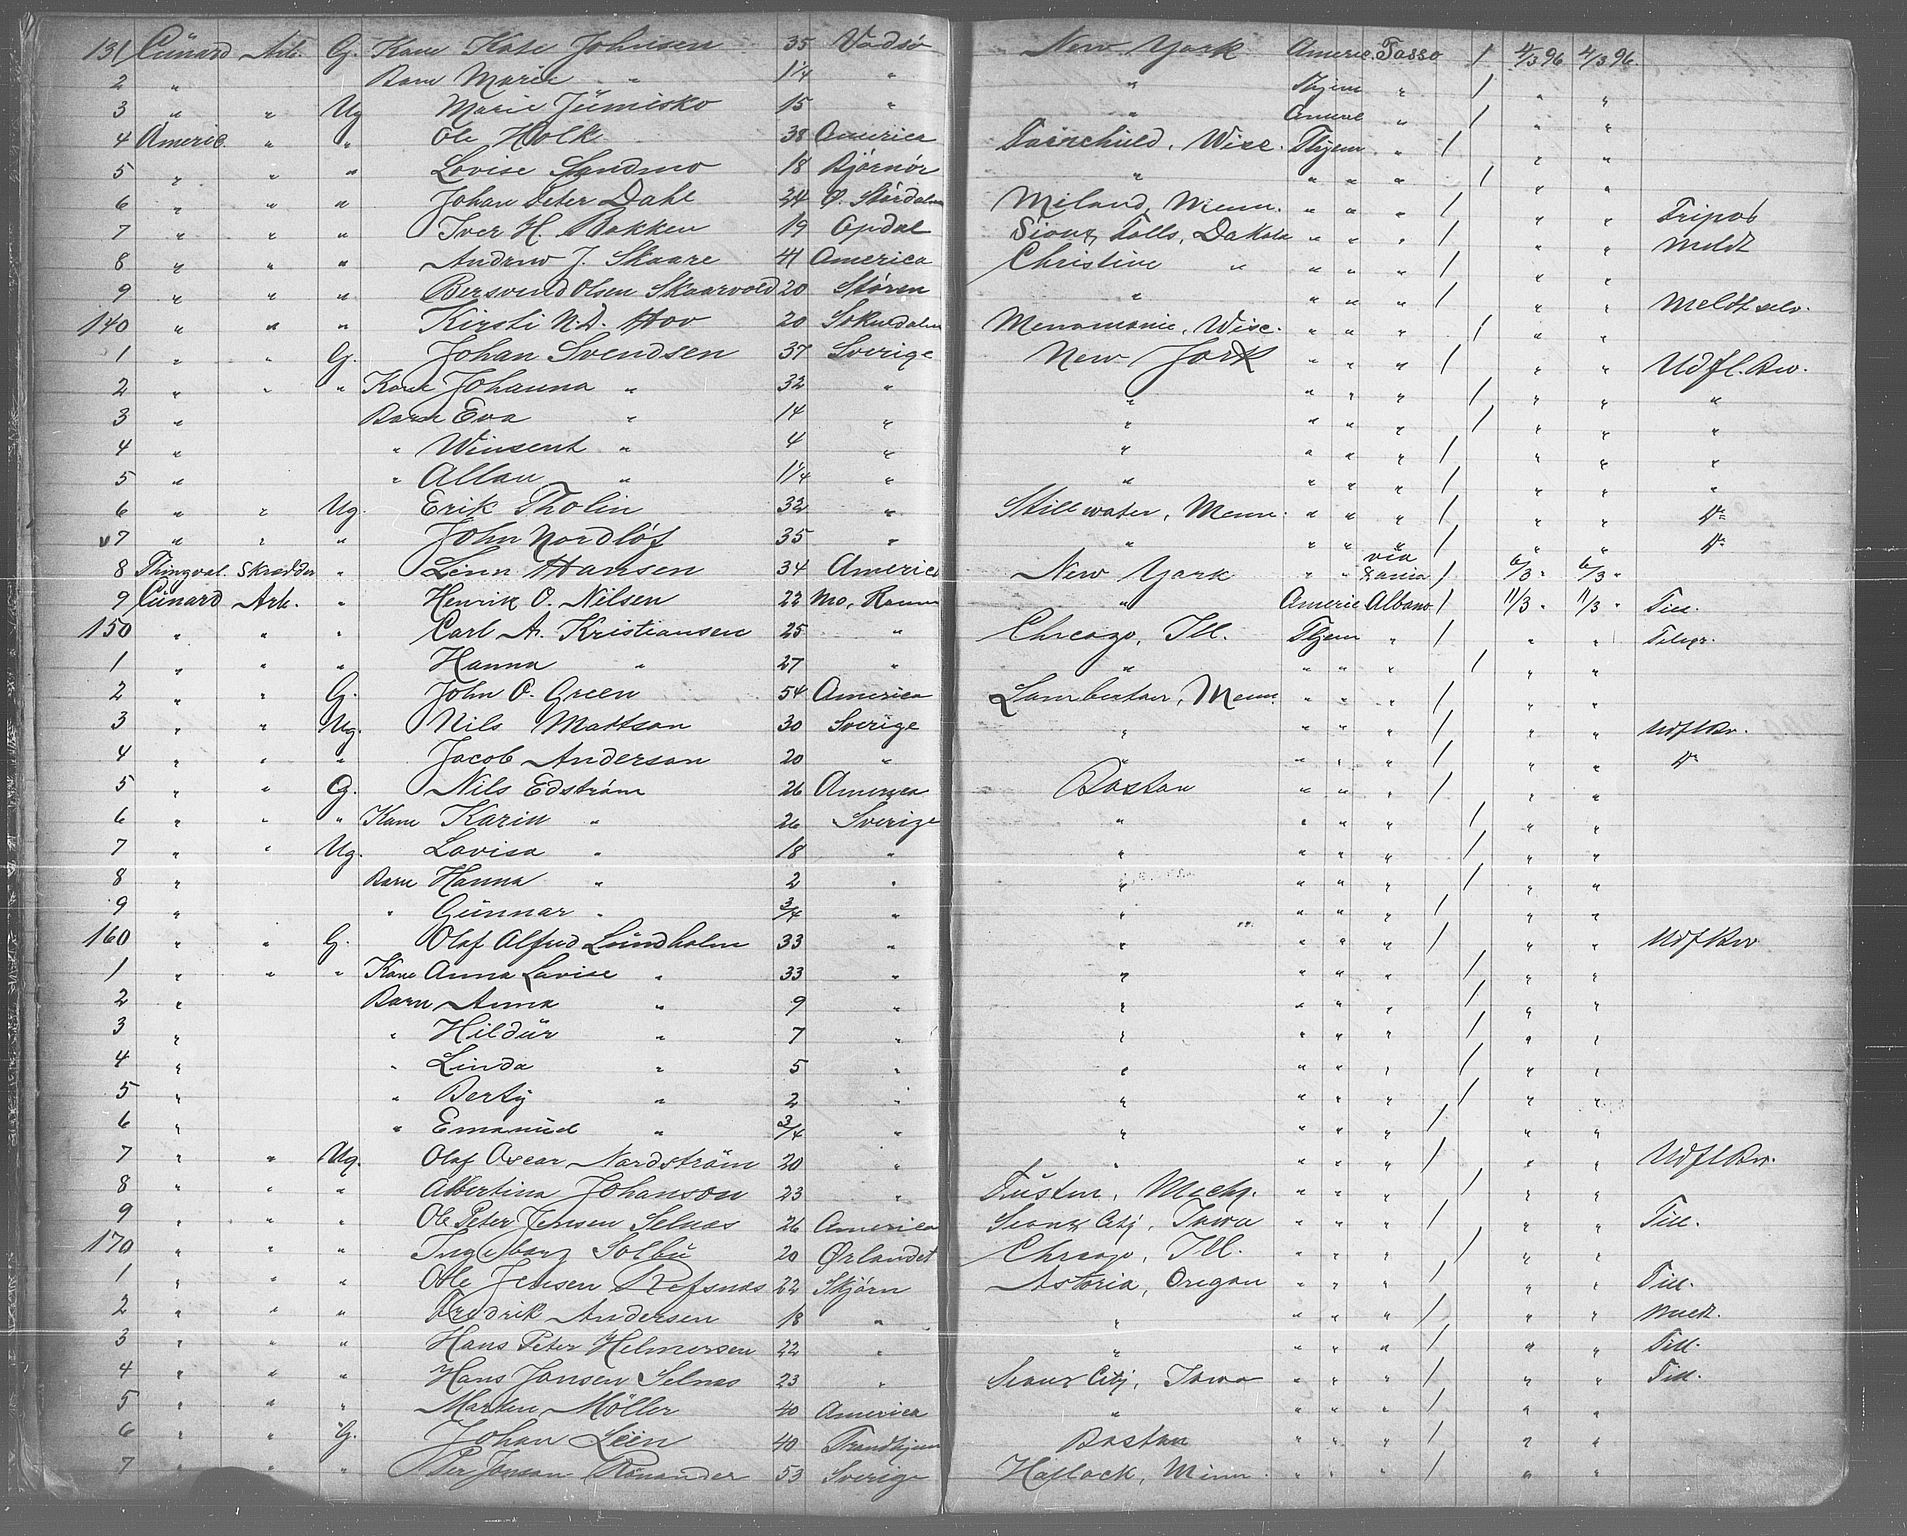 131 Cunard Arb. G. Kone Kate Johnsen 35 Vadsø New York Americ. Tasso / 4/3 96 4/3 96.
2 " Barn Marie " 1 1/4 " " Thjem " / " "
3 " " Ug Marie Jumisko 15 " " " / " "
4 Americ. " " Ole Holk 38 America Fairchild, Wisc. Thjem " / " "
5 " " " Lovise Sandmo 18 Bjørnør " " " " / " "
6 " " " Johan Peter Dahl 24 Ø. Stördalen Miland, Menn. " " " / " "
7 " " " Iver H. Bakken 19 Opdal Sioux Falls, Dakota " " " / " " Meldt
8 " " " Andrew J. Skaare 41 America Christine " " " " / " "
9 " " " Bersvend Olsen Skaarvold 20 Støren " " " " / " " Meldt selv.
140 " " " Kirsti N.D. Hov 20 Soknedalen Menomonie, Wisc. " " " / " "
1 " " G. Johan Svendsen 37 Sverige New York " " " / " " Udfl. Bev.
2 " " " Kone Johanna " 32 " " " " " / " " "
3 " Barn Eva " 14 " " " " " / " " "
4 " " Winsent " 4 " " " " " / " " "
5 " " Allan " 1 1/4 " " " " " / " " "
6 " " Ug. Erik Tholin 32 " Stillwater, Menn. " " " / " " Do
7 " " " John Nordløf 35 " " " " " / " " Do
8 Thingval. Skrædder " Linn Hansen 34 America New York " " via Xania / 6/3 " 6/3 "
9 Cunard Arb. " Henrik O. Nilsen 22 Mo, Ranen " Americ Albano / 11/3 " 11/3 " Till.
150 " " " Carl A. Kristiansen 25 " Chicago, Ill. Thjem " / " " Telegr.
1 " " " Hanna " 27 " " " " " / " "
2 " " G. John O. Green 54 America Lamberton, Menn. " " " / " "
3 " " Ug. Nils Mattson 30 Sverige " " " " / " " Udfl Bv.
4 " " " Jacob Anderson 20 " " " " " / " " Do
5 " " G. Nils Edström 26 America Boston " " " / " "
6 " " " Kone Karin " 26 Sverige " " " " / " "
7 " " Ug. Lovisa " 18 " " " " " / " "
8 " Barn Hanna " 2 " " " " " / " "
9 " " Gunnar " 3/4 " " " " " / " "
160 " " G. Olaf Alfred Lundholm 33 " " " " " / " " Udfl Bev
1 " " " Kone Anna Lovise " 33 " " " " " / " "
2 " Barn Anna " 9 " " " " " / " "
3 " " Hildur " 7 " " " " " / " "
4 " " Linda " 5 " " " " " / " "
5 " " Berty " 2 " " " " " / " "
6 " " Emanuel " 3/4 " " " " " / " "
7 " " Ug. Olaf Oscar Nordström 20 " " " " " / " " Udfl Bv.
8 " " " Albertina Johanson 23 " Tustin, Mechg. " " " / " "
9 " " " Ole Peter Jensen Selnæs 26 America Sioux City, Iowa " " " / " " Till.
170 " " " Ingeborg Solbu 20 Ørlandet Chicago, Ill. " " " / " "
1 " " " Ole Jensen Refsnæs 22 Skjørn Astoria, Oregon " " " / " " Till.
2 " " " Fredrik Andersen 18 " " " " " / " " Meldt.
3 " " " Hans Peter Helmersen 22 " " " " " / " " Till.
4 " " " Hans Jonsen Selnæs 23 " Sioux City, Iowa " " " / " " Till.
5 " " " Marten Möller 40 America " " " " / " "
6 " " G. Johan Leen 40 Trondhjem Boston " " " / " "
7 " " " Per Jonson 53 Sverige Hallock, Minn. " " " / " "